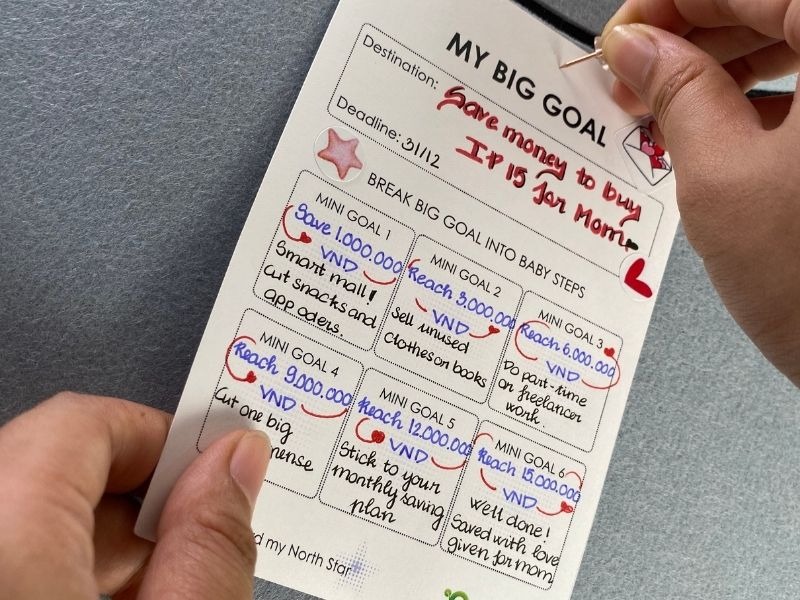 MY BIG GOAL
Destination: Save money to buy
Ip 15 for Mom
Deadline: 31/12
BREAK BIG GOAL INTO BABY STEPS
MINI GOAL 1
Save 1.000.000
VND
Smart mall!
Cut snacks and
app oders.
MINI GOAL 2
Reach 3.000.000
VND
Sell unused
Clothes on books
MINI GOAL 3
Reach 6.000.000
VND
Do part-time
on freelancer
work.
MINI GOAL 4
Reach 9.000.000
VND
Cut one big
MINI GOAL 5
Reach 12.000.000
VND
Stick to your
monthly saving
plan
MINI GOAL 6
Reach 15.000.000
VND
Well done!
Saved with love
given for mom
my North Star